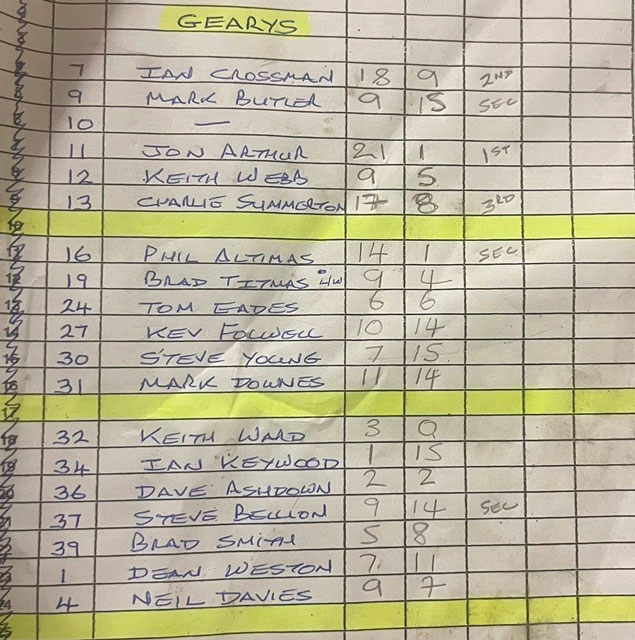 GEARYS
7 IAN CROSSMAN 18 9 2ND
9 MARK BUTLER 9 15 SEC
10 —
11 JON ARTHUR 21 1 1ST
12 KEITH WEBB 9 5
13 CHARLIE SUMMERTON 17 8 3RD
16 PHIL ALTIMAS 14 1 SEC
19 BRAD TITMAS 9 4
24 TOM EADES 6 6
27 KEV FOLWELL 10 14
30 STEVE YOUNG 7 15
31 MARK DOWNES 11 14
32 KEITH WARD 3 0
34 IAN KEYWOOD 1 15
36 DAVE ASHDOWN 2 2
37 STEVE BELLION 9 14 SEC
39 BRAD SMITH 5 8
1 DEAN WESTON 7 11
4 NEIL DAVIES 9 7